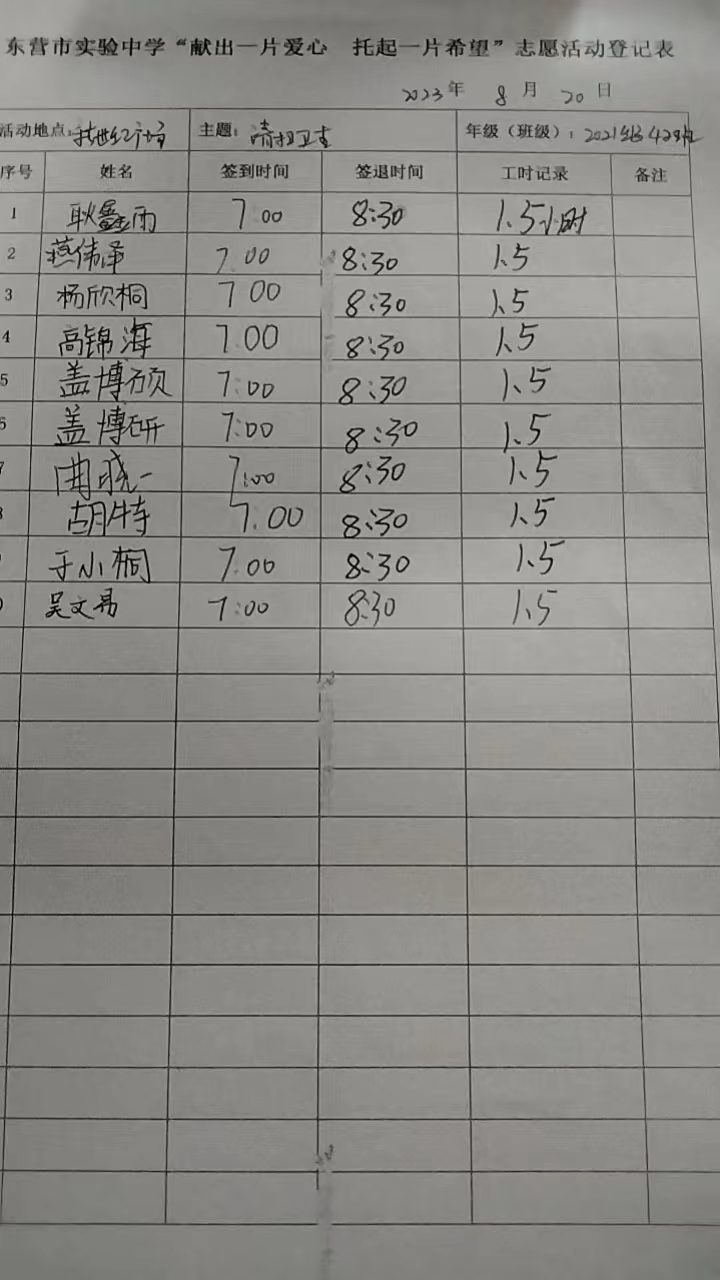 东营市实验中学“献出一片爱心 托起一片希望”志愿活动登记表
2023年 8月 20日
活动地点: 世纪广场 主题: 清扫卫生 年级(班级): 2021级42班
序号 姓名 签到时间 签退时间 工时记录 备注
1 耿鑫雨 7:00 8:30 1.5小时
2 燕伟泽 7.00 8:30 1.5
3 杨欣桐 7 00 8:30 1.5
4 高锦海 7.00 8:30 1.5
5 盖博硕 7:00 8:30 1.5
6 盖博研 7:00 8:30 1.5
7 曲晓一 7:00 8:30 1.5
胡特 7.00 8:30 1.5
于小桐 7.00 8:30 1.5
吴文易 7:00 8:30 1.5